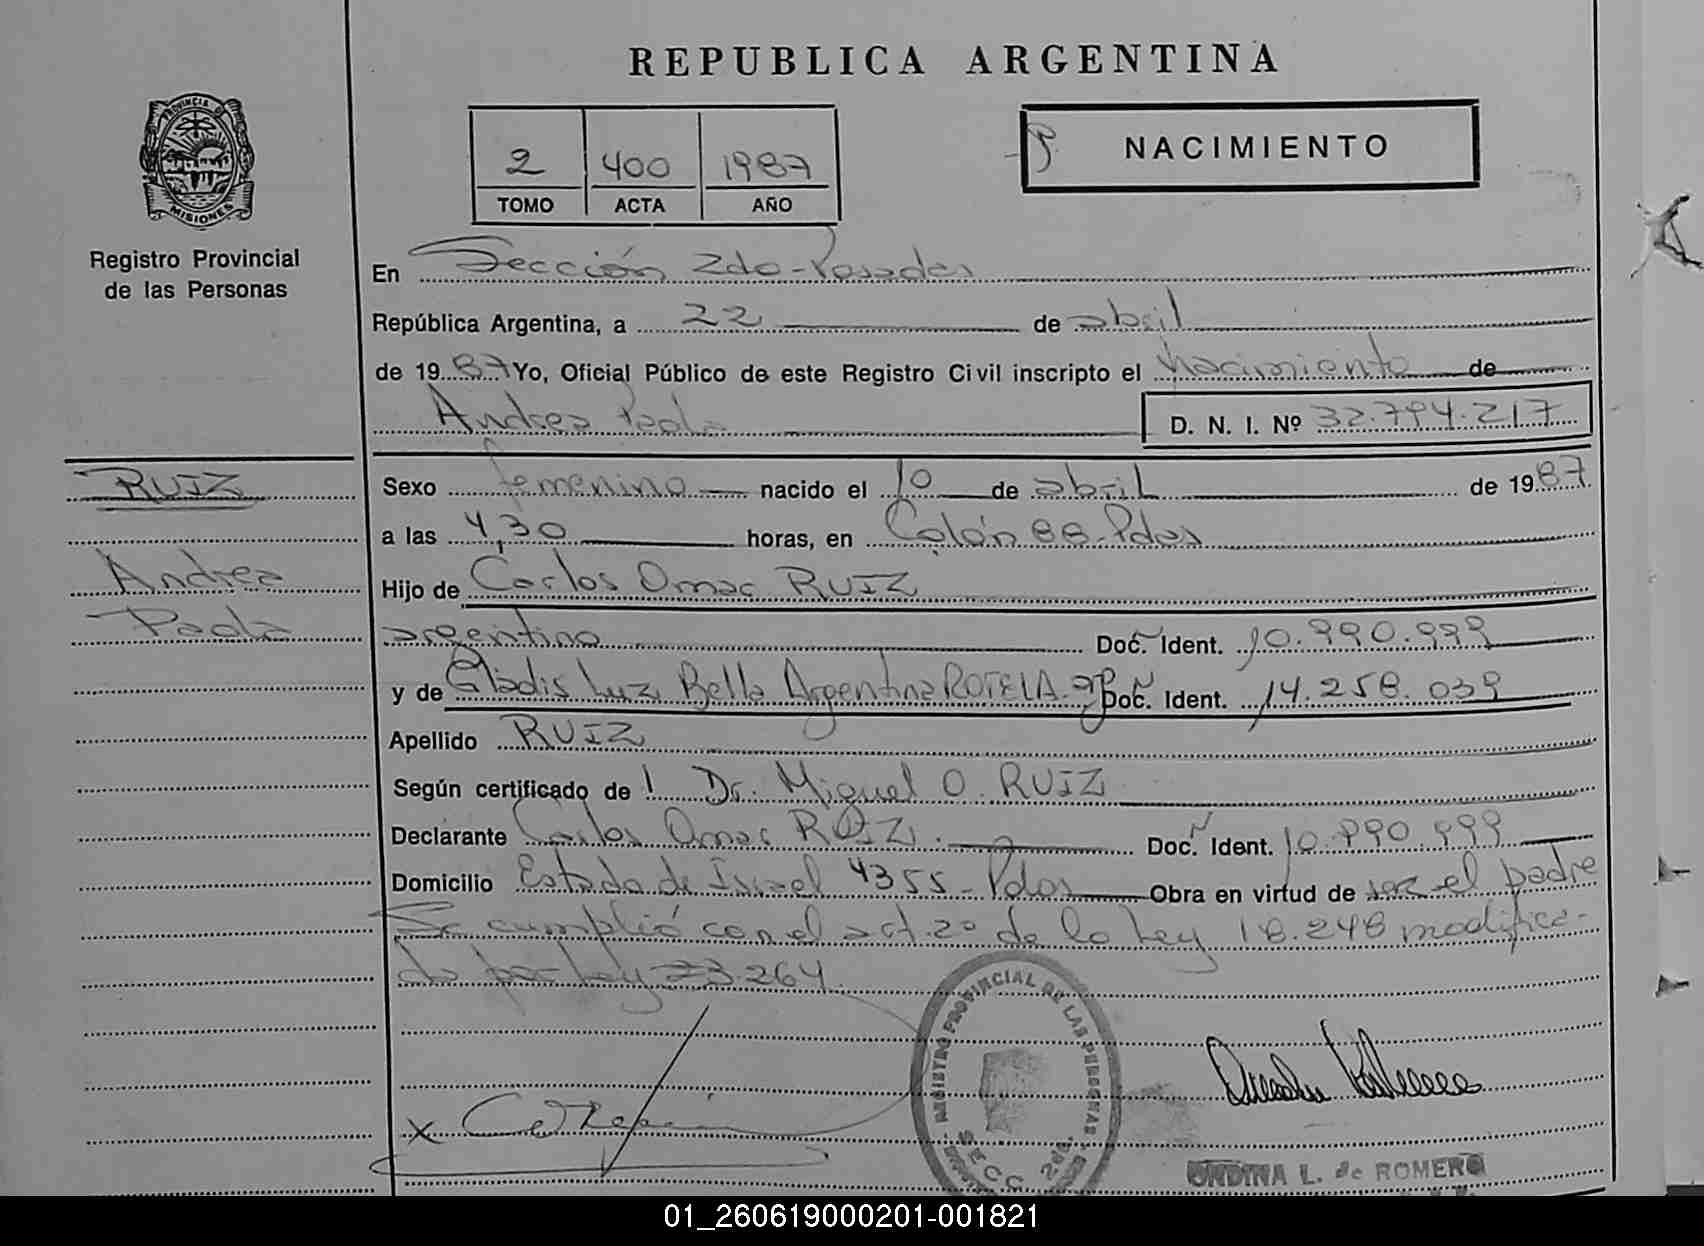 REPUBLICA ARGENTINA
PROVINCIA DE
MISIONES
Registro Provincial
de las Personas
2 400 1987
TOMO ACTA AÑO
NACIMIENTO
En Sección 2da - Posadas
República Argentina, a 22 de abril
de 1987 Yo, Oficial Público de este Registro Civil inscripto el nacimiento de
Andrea Paola D. N. I. Nº 32.794.217
RUIZ
Andrea
Paola
Sexo femenino nacido el 10 de abril de 1987
a las 4,30 horas, en Colón 88 - Pdas
Hijo de Carlos Omar RUIZ
argentino Doc. Ident. 10.990.999
y de Gladis Luz Bella Argentina ROTELA Doc. Ident. 14.258.039
Apellido RUIZ
Según certificado de Dr. Miguel O. RUIZ
Declarante Carlos Omar RUIZ. Doc. Ident. 10.990.999
Domicilio Estado de Israel 4355 - Pdas Obra en virtud de ser el padre
Se cumplió con el art. 2º de la Ley 18.248 modifica-
da por Ley 23.264.
REGISTRO PROVINCIAL DE LAS PERSONAS
SECC. 2da.
X
ONDINA L. de ROMERO
01_260619000201-001821